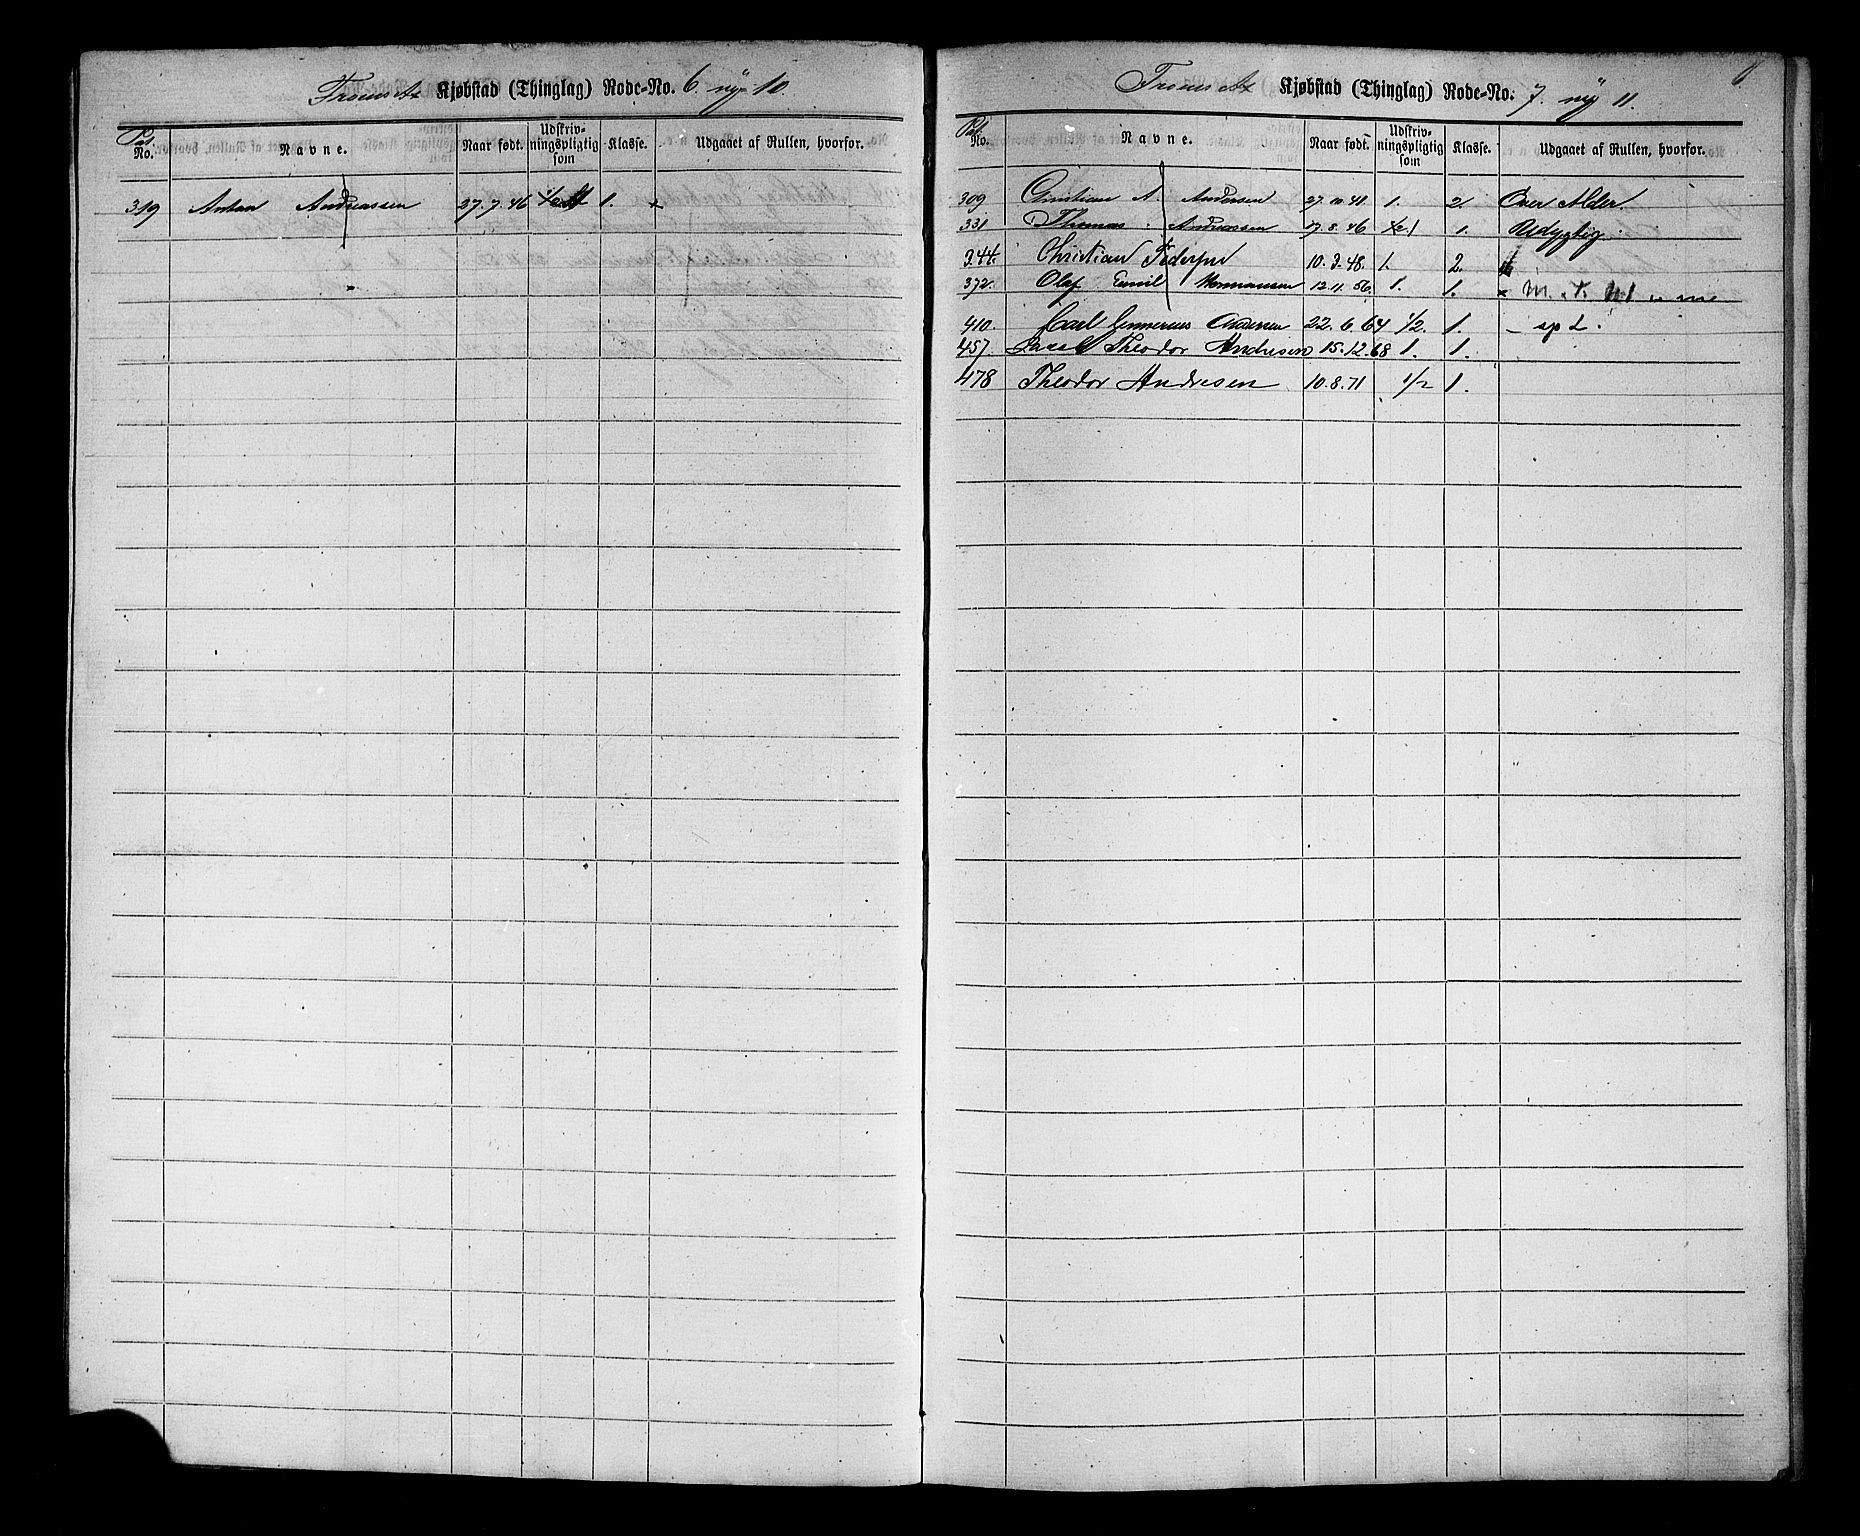 Tromsø Kjøbstad (Thinglag) Rode-No. 6. ny 10.
Pat. No. Navne. Naar født. Udskrivningspligtig som Klasse. Udgaaet af Rullen, hvorfor.
319 Anton Andreassen 27.7.46 1.
6
Tromsø Kjøbstad (Thinglag) Rode-No. 7. ny 11.
Pat. No. Navne. Naar født. Udskrivningspligtig som Klasse. Udgaaet af Rullen, hvorfor.
309 Christian A. Andersen 27.10.41 1. 2. Over Alder.
331 Thomas Andreassen 17.8.46 1. Udygtig.
344. Christian Pedersen 10.3.48. 1. 2.
372. Olaf Emil Hermansen 12.11.56. 1. 1. ×
410. Carl Andersen 22.6.64 1/2. 1.
457. Theodor Andresen 15.12.68 1. 1.
478 Theodor Andresen 10.8.71 1/2 1.